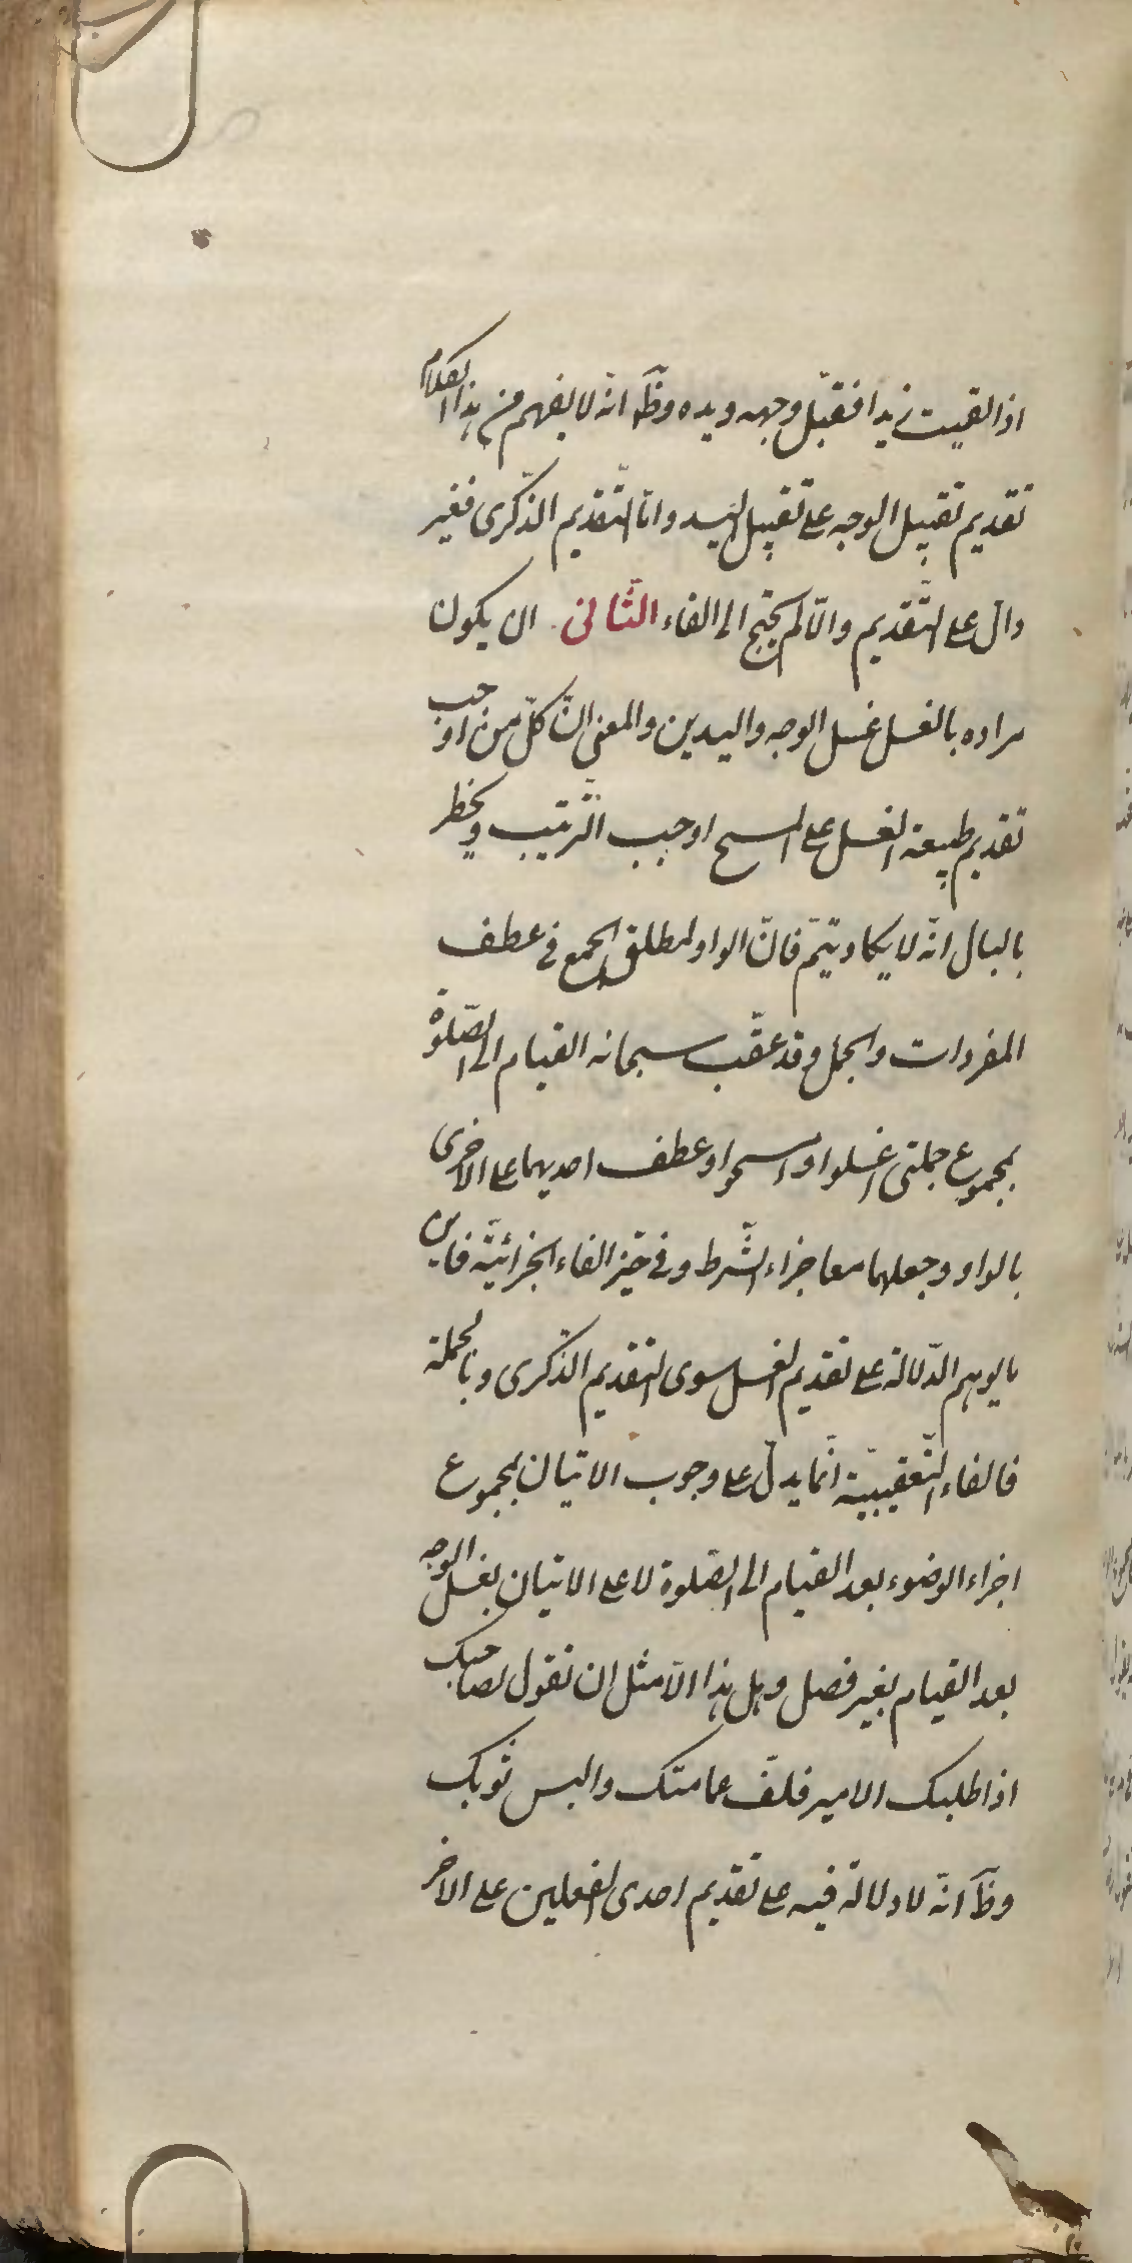 اذا لقيت زيدا فقبّل وجهه ويده وظَ انّه لا يفهم من هذا الكلام
تقديم تقبيل الوجه على تقبيل اليد وامّا التّقديم الذّكرى فغير
دالّ على التّقديم والّا لم يحتج الى الفاء الثّانى ان يكون
مراده بالغسل غسل الوجه واليدين والمعنى انّ كلّ من اوجب
تقديم طبيعة الغسل على المسح اوجب التّرتيب ويخطر
بالبال انّه لا يكاد يتمّ فانّ الواو لمطلق الجمع فى عطف
المفردات والجمل وقد عقّب سبحانه القيام الى الصّلوة
بمجموع جملتى اغسلوا وامسحوا وعطف احديهما على الاخرى
بالواو وجعلهما معا جزاء الشّرط وفى حيّز الفاء الجزائيّة فاين
ما يوهم الدّلالة على تقديم الغسل سوى التقديم الذّكرى وبالجملة
فالفاء التّعقيبيّة انّما يدلّ على وجوب الاتيان بمجموع
اجزاء الوضوء بعد القيام الى الصّلوة لا على الاتيان بغسل الوجه
بعد القيام بغير فصل وهل هذا الّا مثل ان تقول لصاحبك
اذا طلبك الامير فلفّ عمامتك والبس ثوبك
وظَ انّه لا دلالة فيه على تقديم احدى الفعلين على الاخر